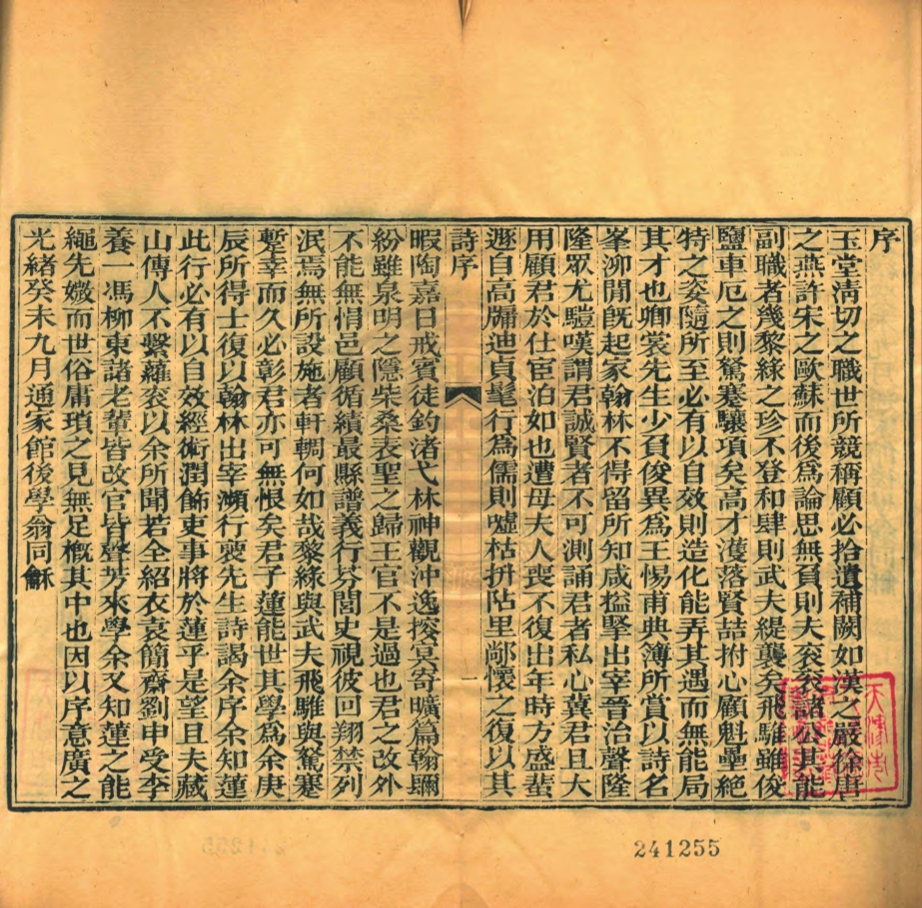 序
玉堂清切之職世所競稱顧必拾遺補闕如漢之嚴徐唐
之燕許宋之歐蘇而後為論思無負則夫袞袞諸公其能
副職者幾黎綠之珍不登和肆則武夫緹襲矣飛騅雖俊
鹽車厄之則駑蹇驤項矣高才濩落賢喆拊心顧魁壘絕
特之姿隨所至必有以自效則造化能弄其遇而無能局
其才也卿裳先生少負俊異為王惕甫典簿所賞以詩名
峯泖閒既起家翰林不得留所知咸搤擥出宰晉治聲隆
隆眾尤驩嘆謂君誠賢者不可測誦君者私心冀君且大
用顧君於仕宦泊如也遭母夫人喪不復出年時方盛蜚
遯自高牖迪貞髦行為儒則噓枯拚阽里鄰懷之復以其
詩序
一
暇陶嘉日戒賓徒釣渚弋林神觀沖逸揆冥寄曠篇翰
紛雖泉明之隱柴桑表聖之歸王官不是過也君之改外
不能無悁邑顧循績最縣譜義行芬閭史視彼回翔禁列
泯焉無所設施者軒輖何如哉黎綠與武夫飛騅與駑蹇
蹔幸而久必彰君亦可無恨矣君子蓮能世其學為余庚
辰所得士復以翰林出宰瀕行褎先生詩謁余序余知蓮
此行必有以自效經術潤飾吏事將於蓮乎是望且夫藏
山傳人不繫蘿袞以余所聞若全紹衣袁簡齋劉申受李
養一馮柳東諸老輩皆改官皆聲芳來學余又知蓮之能
繩先媺而世俗庸瑣之見無足槪其中也因以序意廣之
光緒癸未九月通家館後學翁同龢
241255